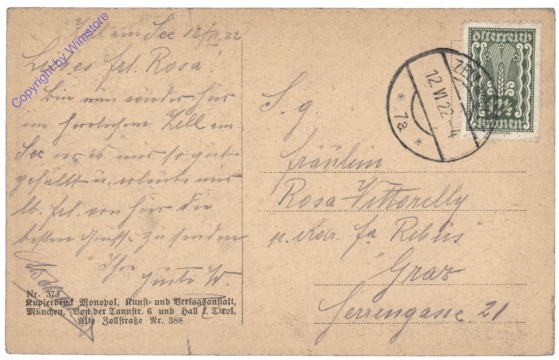 Zell am See 12/VI. 22
Liebes Frl. Rosa!
Bin nun wieder hier
im herrlichen Zell am
See wo es uns so gut
gefällt u. erlaube mir
lb. Frl. von hier die
besten Grüße zu senden
Ihre
W.
Nr. 373
Kupferdruck Monopol, Kunst- und Verlagsanstalt,
München, Von der Tannstr. 6 und Hall i. Tirol,
Alte Zollstraße Nr. 388
S. g.
Fräulein
Rosa Vittorelly
p. Adr. Fa Rebus
Graz
Herrengasse 21
österreich
12½
Kronen
ZELL
12. VI. 22 - 4
* 1a *
Copyright by Wimstore